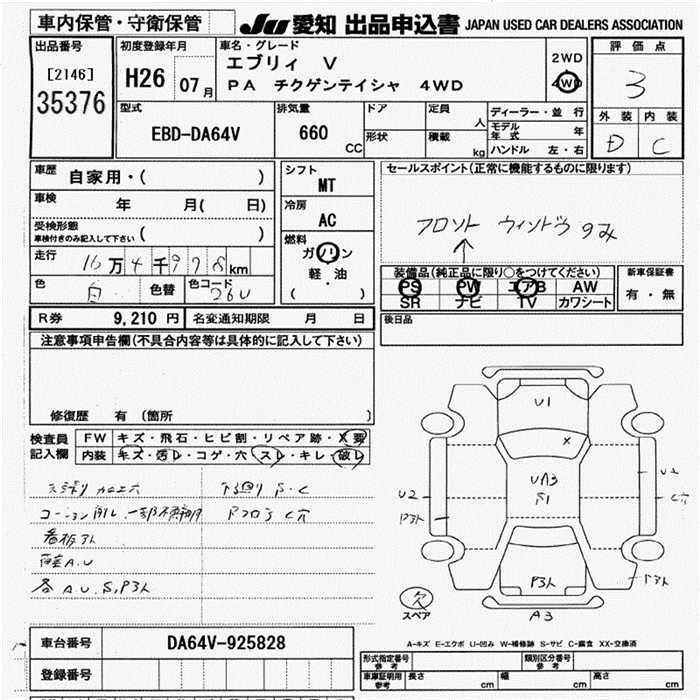 車内保管・守衛保管
JU 愛知 出品申込書 JAPAN USED CAR DEALERS ASSOCIATION
出品番号
[2146]
35376
初度登録年月
H26 07月
車名・グレード
エブリィ V
PA チクゲンテイシャ 4WD
2WD
4WD
評価点
3
外装 内装
D C
型式
EBD-DA64V
排気量
660
CC
ドア
形状
定員
人
積載
kg
ディーラー・並行
モデル年式 年
ハンドル 左・右
車歴
自家用・( )
車検
年 月( 日)
受検形態
車検付きのみ記入して下さい ( )
走行
16万4千978km
色
白
色替
色コード
26U
シフト
MT
冷房
AC
燃料
ガソリン
軽・油
( )
R券 9,210円 名変通知期限 月 日
セールスポイント(正常に機能するものに限ります)
フロント ウィンドウ のみ
↑
装備品(純正品に限り○をつけてください)
PS PW エアB AW
SR ナビ TV カワシート
新車保証書
有・無
後日品
注意事項申告欄(不具合内容等は具体的に記入して下さい)
修復歴 有(箇所 )
検査員
記入欄
FW キズ・飛石・ヒビ割・リペア跡・X要
内装 キズ・汚レ・コゲ・穴・スレ・キレ・破レ
下廻り S・C
コーション Fフロア C穴
看板アト
A.U
各 A.U.S,Pスト
U1
X
UA3
S1
U2
C穴
U2
Pスト
Pスト
Pスト
A3
欠
スペア
A-キズ E-エクボ U-凹み W-補修跡 S-サビ C-腐食 XX-交換済
車台番号 DA64V-925828
登録番号
形式指定番号
参考
類別区分番号
参考
車庫証明用
参考
長さ cm 幅 cm 高さ cm